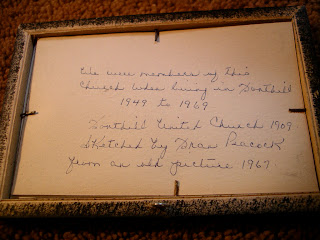 We were members of this
Church when living in Fonthill
1949 to 1969
Fonthill United Church 1909
Sketched by Peacock
from an old picture 1967